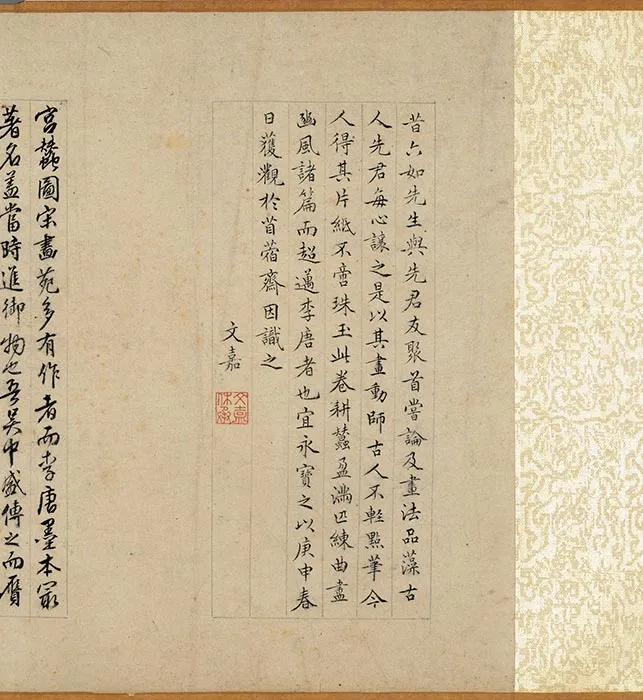 昔六如先生與先君友聚首嘗論及畫法品藻古
人先君每心讓之是以其畫動師古人不輕點筆今
人得其片紙不啻珠玉此卷耕蠶盈滿匹練曲盡
豳風諸篇而超邁李唐者也宜永寶之以庚申春
日獲觀於苜蓿齋因識之
文嘉
文嘉休承
宮蠶圖宋畫苑多有作者而李唐墨本最
著名蓋當時進御物也吾吳中盛傳之而贋